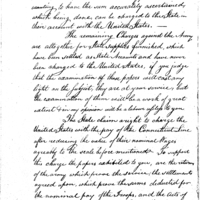 mating, to have the sum accurately ascertained,
which being done, can be charged to the State in
their account with the United States.
The remaining Charges against the Army
are altogether for State supplies furnished, which
have been settled in State Accounts and have never
been charged to the United States, if you judge
that the examination of these papers will cast any
light on the subject, they are at your service; but
the examination of them will be a work of great
extent in my opinion will be a labour of
The State claims a right to charge the
United States with the pay of the Connecticut Line
after reducing the value of their nominal Wages
agreeably to the scale before mentioned. To support
this charge the papers exhibited to you, are the returns
of the army which prove the service, the settlements
agreed upon, which prove the sums deducted for
the nominal pay of the Troops, and the Acts of